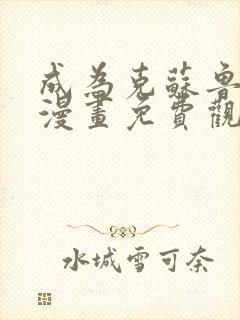 成為克蘇魯
漫畫免費觀
水城雪可奈